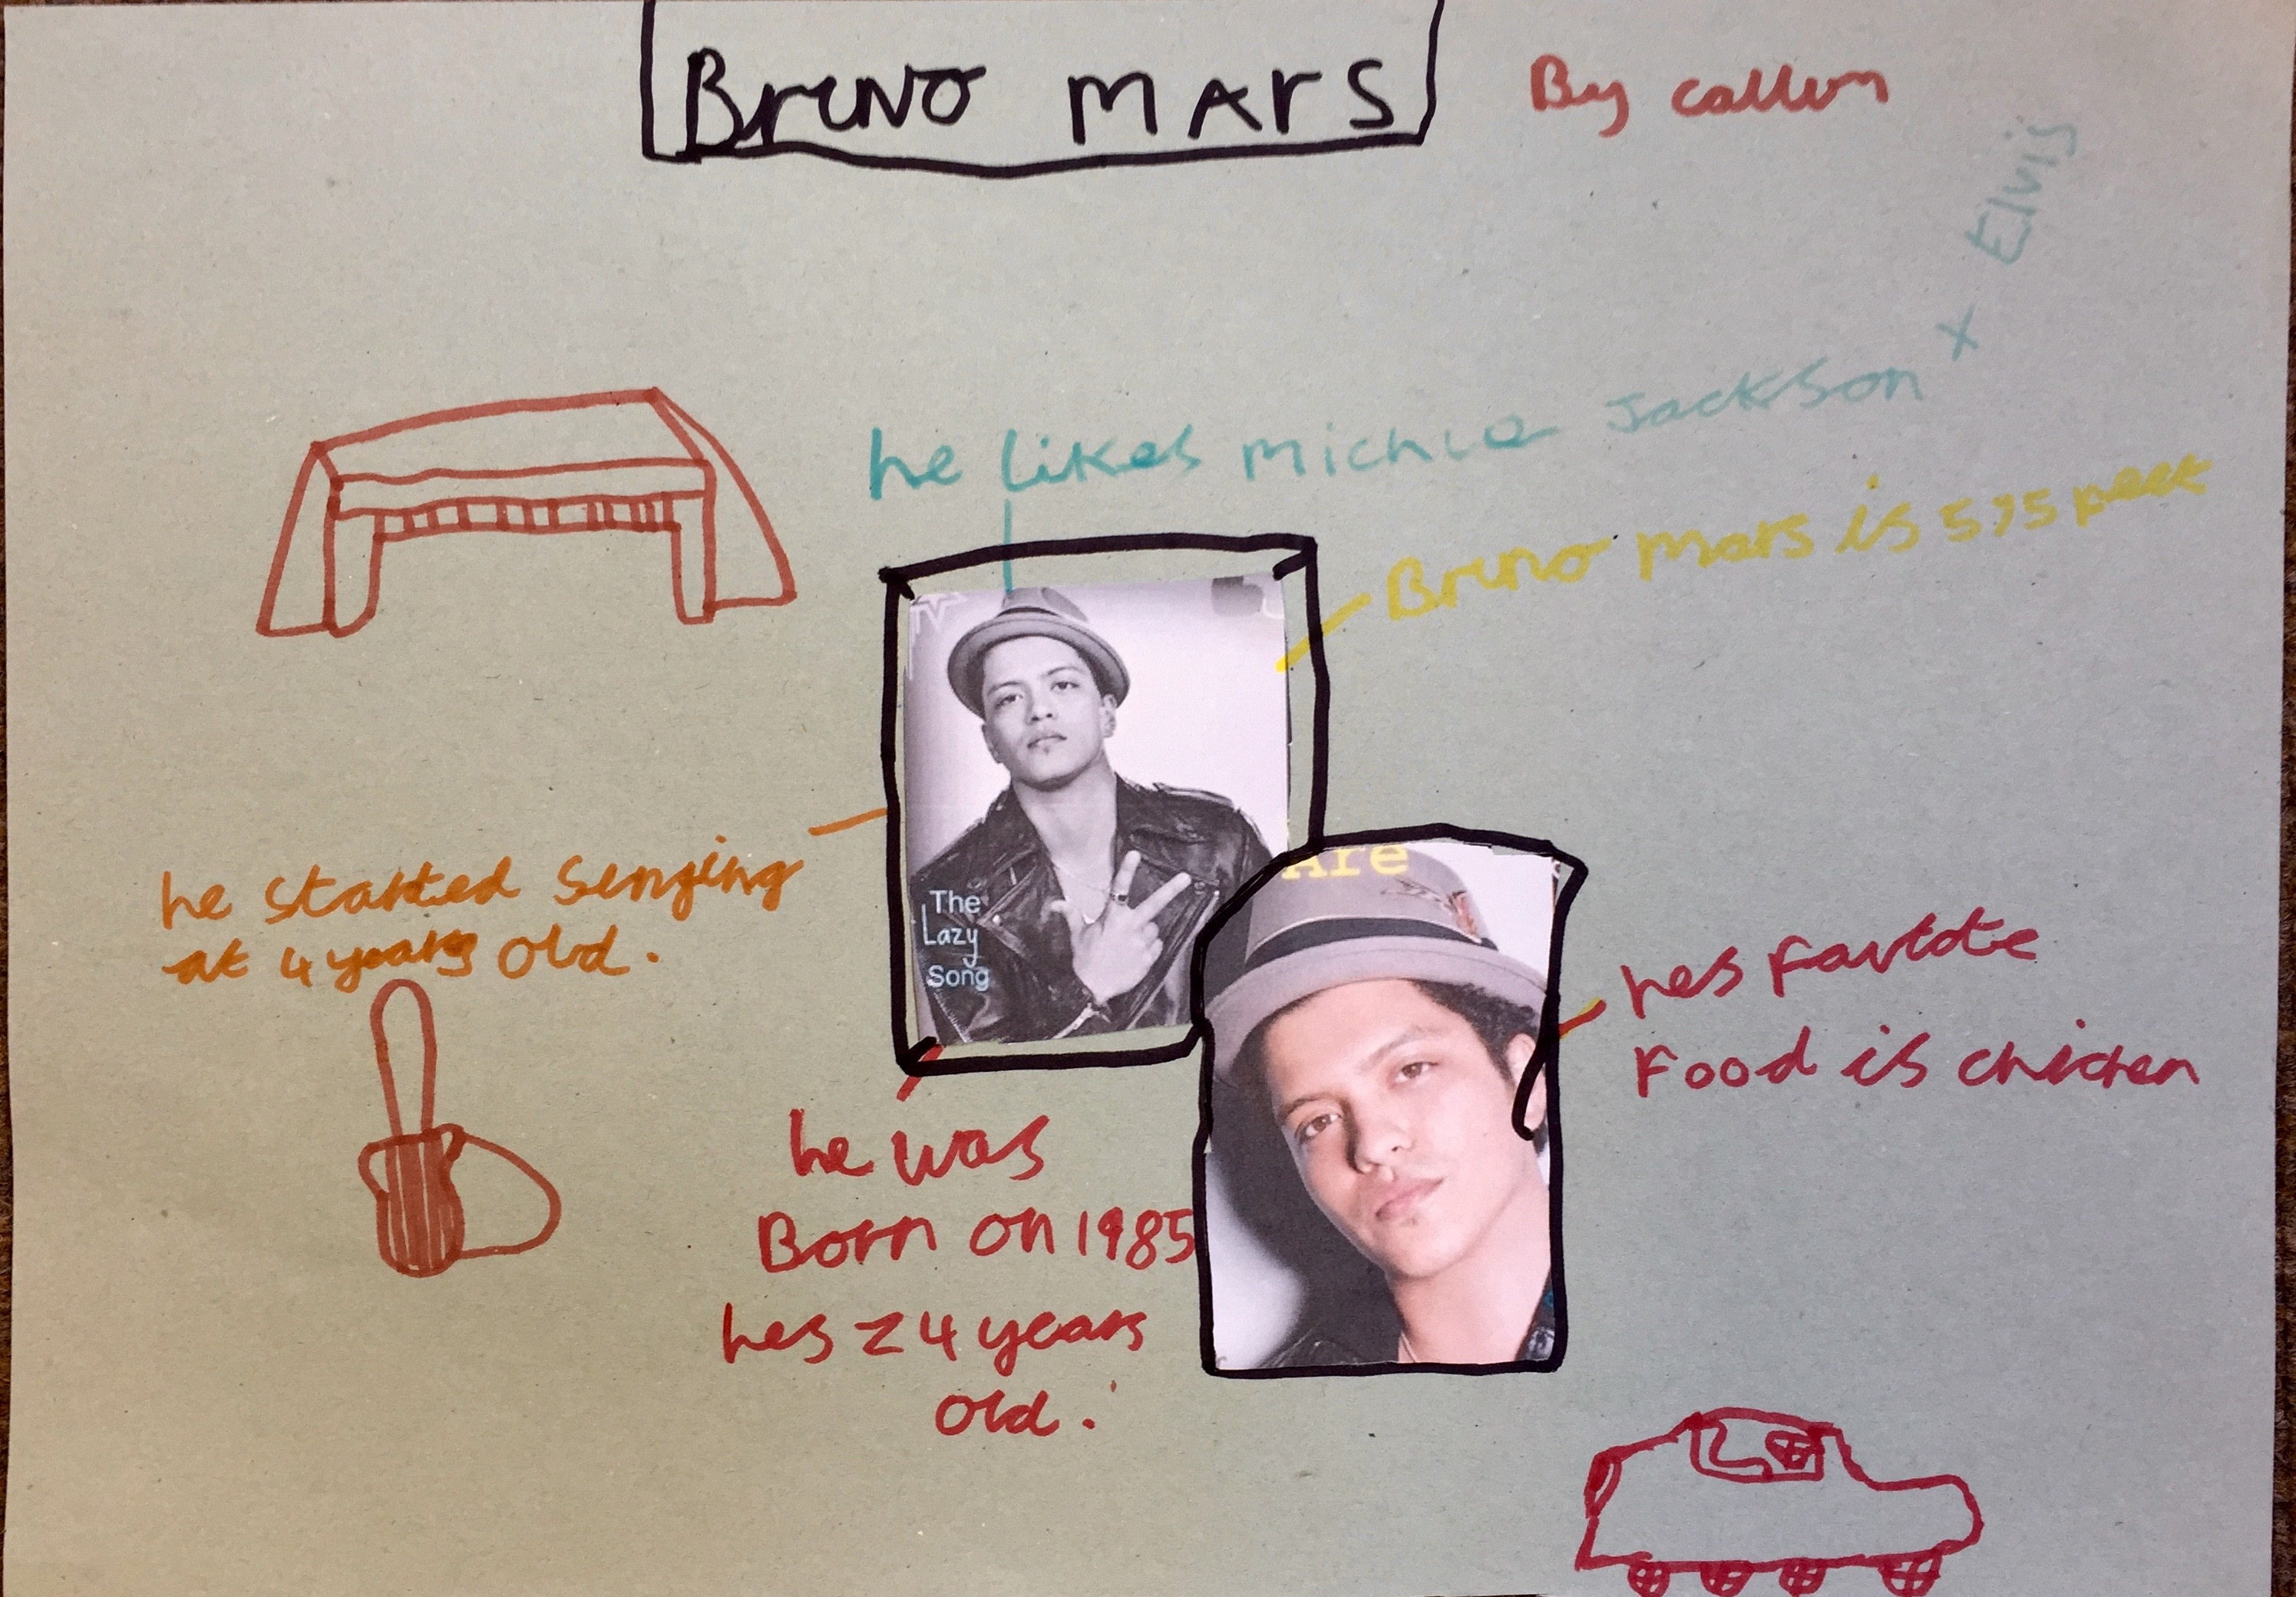 Bruno mars
By callum
he likes michle Jackson + Elvis
Bruno mars is 5,5 feet
he started singing
at 4 years old.
The
Lazy
Song
Are
hes favtote
Food is chicken
he was
Born on 1985
hes 24 years
old.